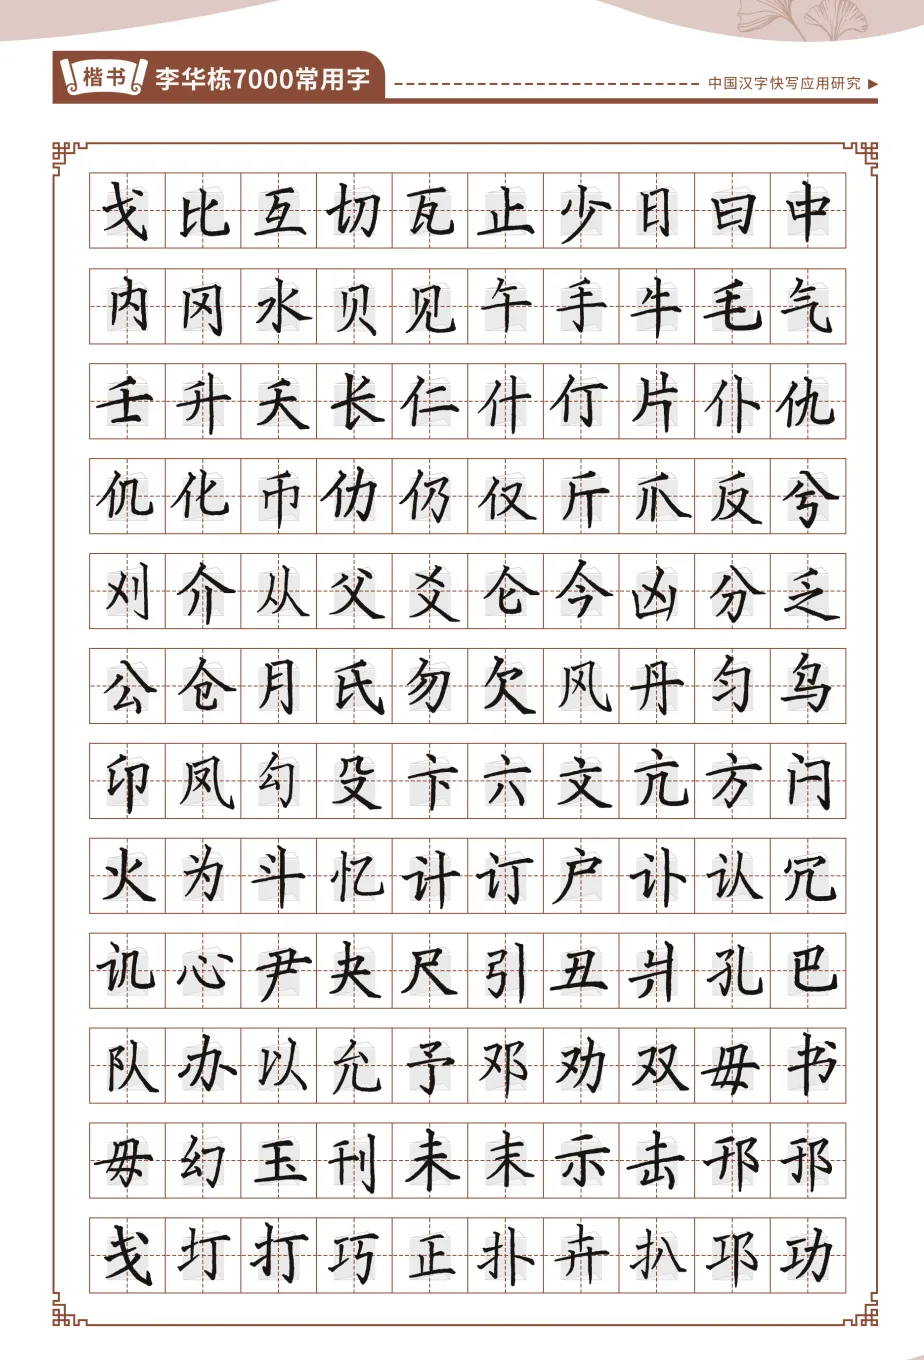 楷书 李华栋7000常用字 中国汉字快写应用研究
戈比互切瓦止少日曰中
内冈水贝见午手牛毛气
壬升夭长仁什仃片仆仇
仉化币仂仍仅斤爪反兮
刈介从父爻仑今凶分乏
公仓月氏勿欠风丹匀乌
卬凤勾殳卞六文亢方闩
火为斗忆计订户讣认冗
讥心尹夬尺引丑爿孔巴
队办以允予邓劝双毌书
毋幻玉刊未末示击邗邘
戋圢打巧正扑卉扒邛功